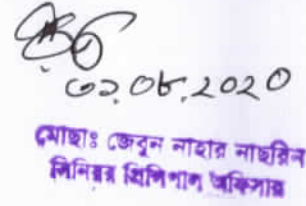 ০১.০৮.২০২০
মোছাঃ জেবুন নাহার নাছরিন
সিনিয়র প্রিন্সিপাল অফিসার